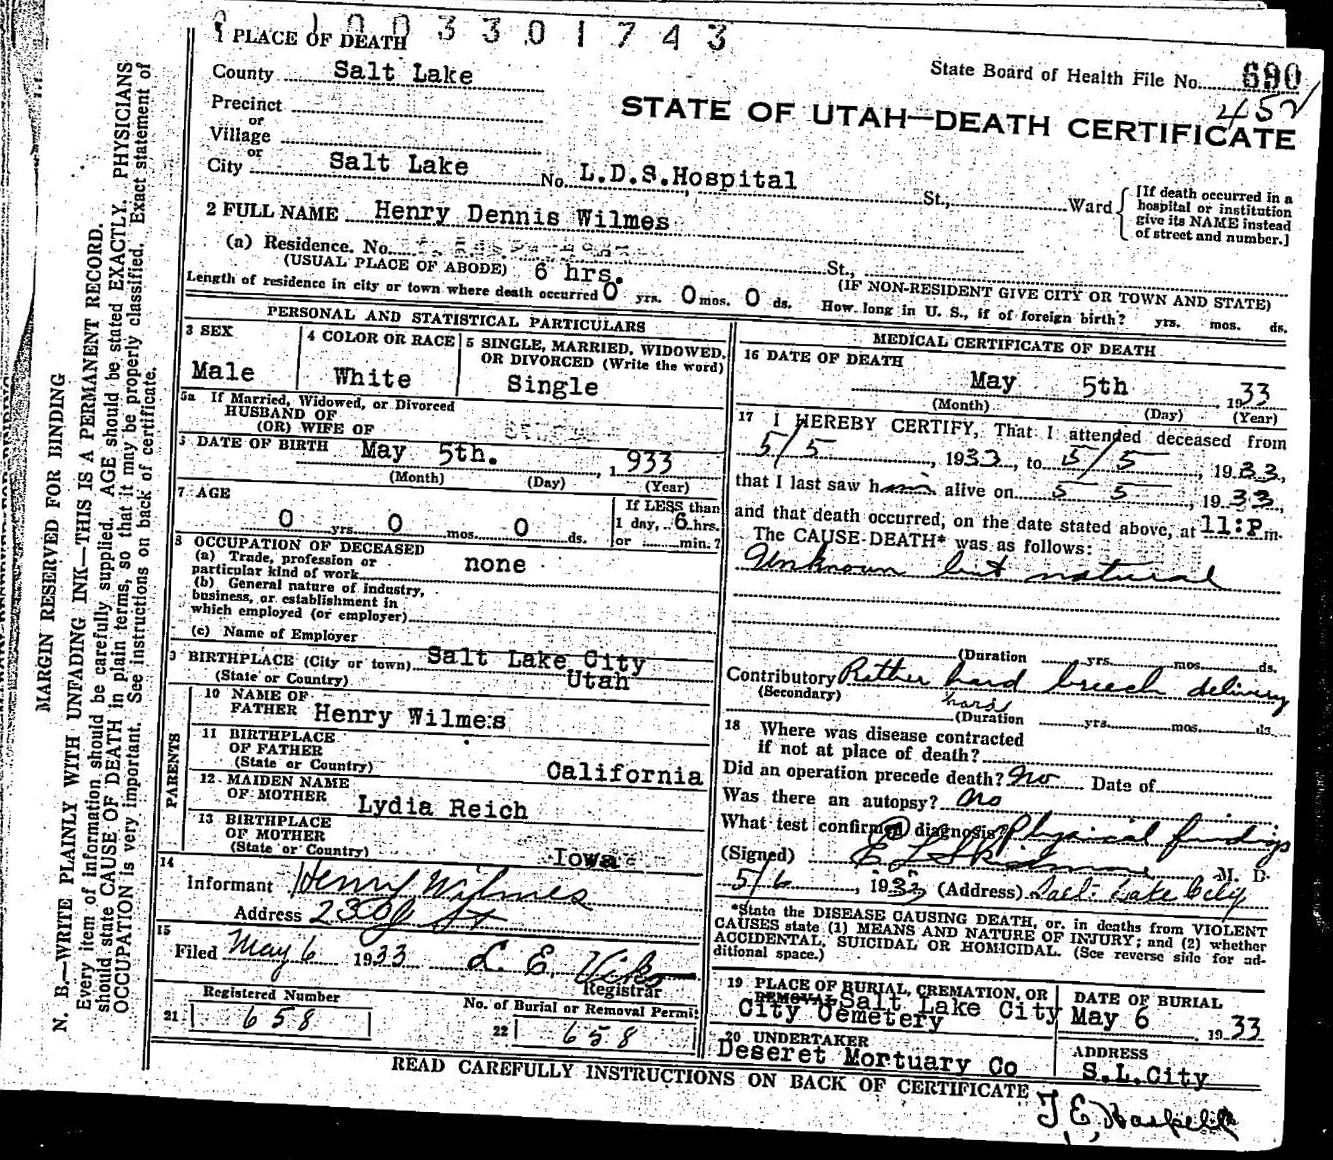 1003301743
1 PLACE OF DEATH
County Salt Lake
State Board of Health File No. 690
452
Precinct
or
Village
or
City Salt Lake No. L.D.S.Hospital St., Ward
STATE OF UTAH—DEATH CERTIFICATE
[If death occurred in a
hospital or institution
give its NAME instead
of street and number.]
2 FULL NAME Henry Dennis Wilmes
(a) Residence. No. St.,
(USUAL PLACE OF ABODE) 6 hrs. (IF NON-RESIDENT GIVE CITY OR TOWN AND STATE)
Length of residence in city or town where death occurred 0 yrs. 0 mos. 0 ds. How long in U. S., if of foreign birth? yrs. mos. ds.
PERSONAL AND STATISTICAL PARTICULARS
3 SEX
Male
4 COLOR OR RACE
White
5 SINGLE, MARRIED, WIDOWED,
OR DIVORCED (Write the word)
Single
5a If Married, Widowed, or Divorced
HUSBAND OF
(OR) WIFE OF
DATE OF BIRTH May 5th. , 1933
(Month) (Day) (Year)
7 AGE
0 yrs. 0 mos. 0 ds.
If LESS than
1 day, 6 hrs.
or min.?
8 OCCUPATION OF DECEASED
(a) Trade, profession or
particular kind of work none
(b) General nature of industry,
business, or establishment in
which employed (or employer)
(c) Name of Employer
9 BIRTHPLACE (City or town) Salt Lake City
(State or Country) Utah
PARENTS
10 NAME OF
FATHER Henry Wilmes
11 BIRTHPLACE
OF FATHER
(State or Country) California
12 MAIDEN NAME
OF MOTHER Lydia Reich
13 BIRTHPLACE
OF MOTHER
(State or Country) Iowa
14
Informant Henry Wilmes
Address
15
Filed May 6 1933 L. E.
Registrar
Registered Number
21 658
No. of Burial or Removal Permit
22 658
MEDICAL CERTIFICATE OF DEATH
16 DATE OF DEATH
May 5th 1933
(Month) (Day) (Year)
17 I HEREBY CERTIFY, That I attended deceased from
5/5 , 1933, to 5/5 , 1933,
that I last saw him alive on 5 5 , 1933,
and that death occurred, on the date stated above, at 11:P.m.
The CAUSE DEATH* was as follows:
Unknown but natural
(Duration yrs. mos. ds.
Contributory Rather hard breech delivery
(Secondary) hard
(Duration yrs. mos. ds.
18 Where was disease contracted
if not at place of death?
Did an operation precede death? No Date of
Was there an autopsy? No
What test confirmed diagnosis? Physical findings
(Signed) E L Skidmore M. D.
5/6 , 1933 (Address) Salt Lake City
*State the DISEASE CAUSING DEATH, or, in deaths from VIOLENT
CAUSES state (1) MEANS AND NATURE OF INJURY; and (2) whether
ACCIDENTAL, SUICIDAL OR HOMICIDAL. (See reverse side for ad-
ditional space.)
19 PLACE OF BURIAL, CREMATION, OR
REMOVAL Salt Lake City
City Cemetery
DATE OF BURIAL
May 6 1933
20 UNDERTAKER
Deseret Mortuary Co
ADDRESS
S.L.City
READ CAREFULLY INSTRUCTIONS ON BACK OF CERTIFICATE
MARGIN RESERVED FOR BINDING
N. B.—WRITE PLAINLY WITH UNFADING INK—THIS IS A PERMANENT RECORD.
Every item of information should be carefully supplied. AGE should be stated EXACTLY. PHYSICIANS
should state CAUSE OF DEATH in plain terms, so that it may be properly classified. Exact statement of
OCCUPATION is very important. See instructions on back of certificate.